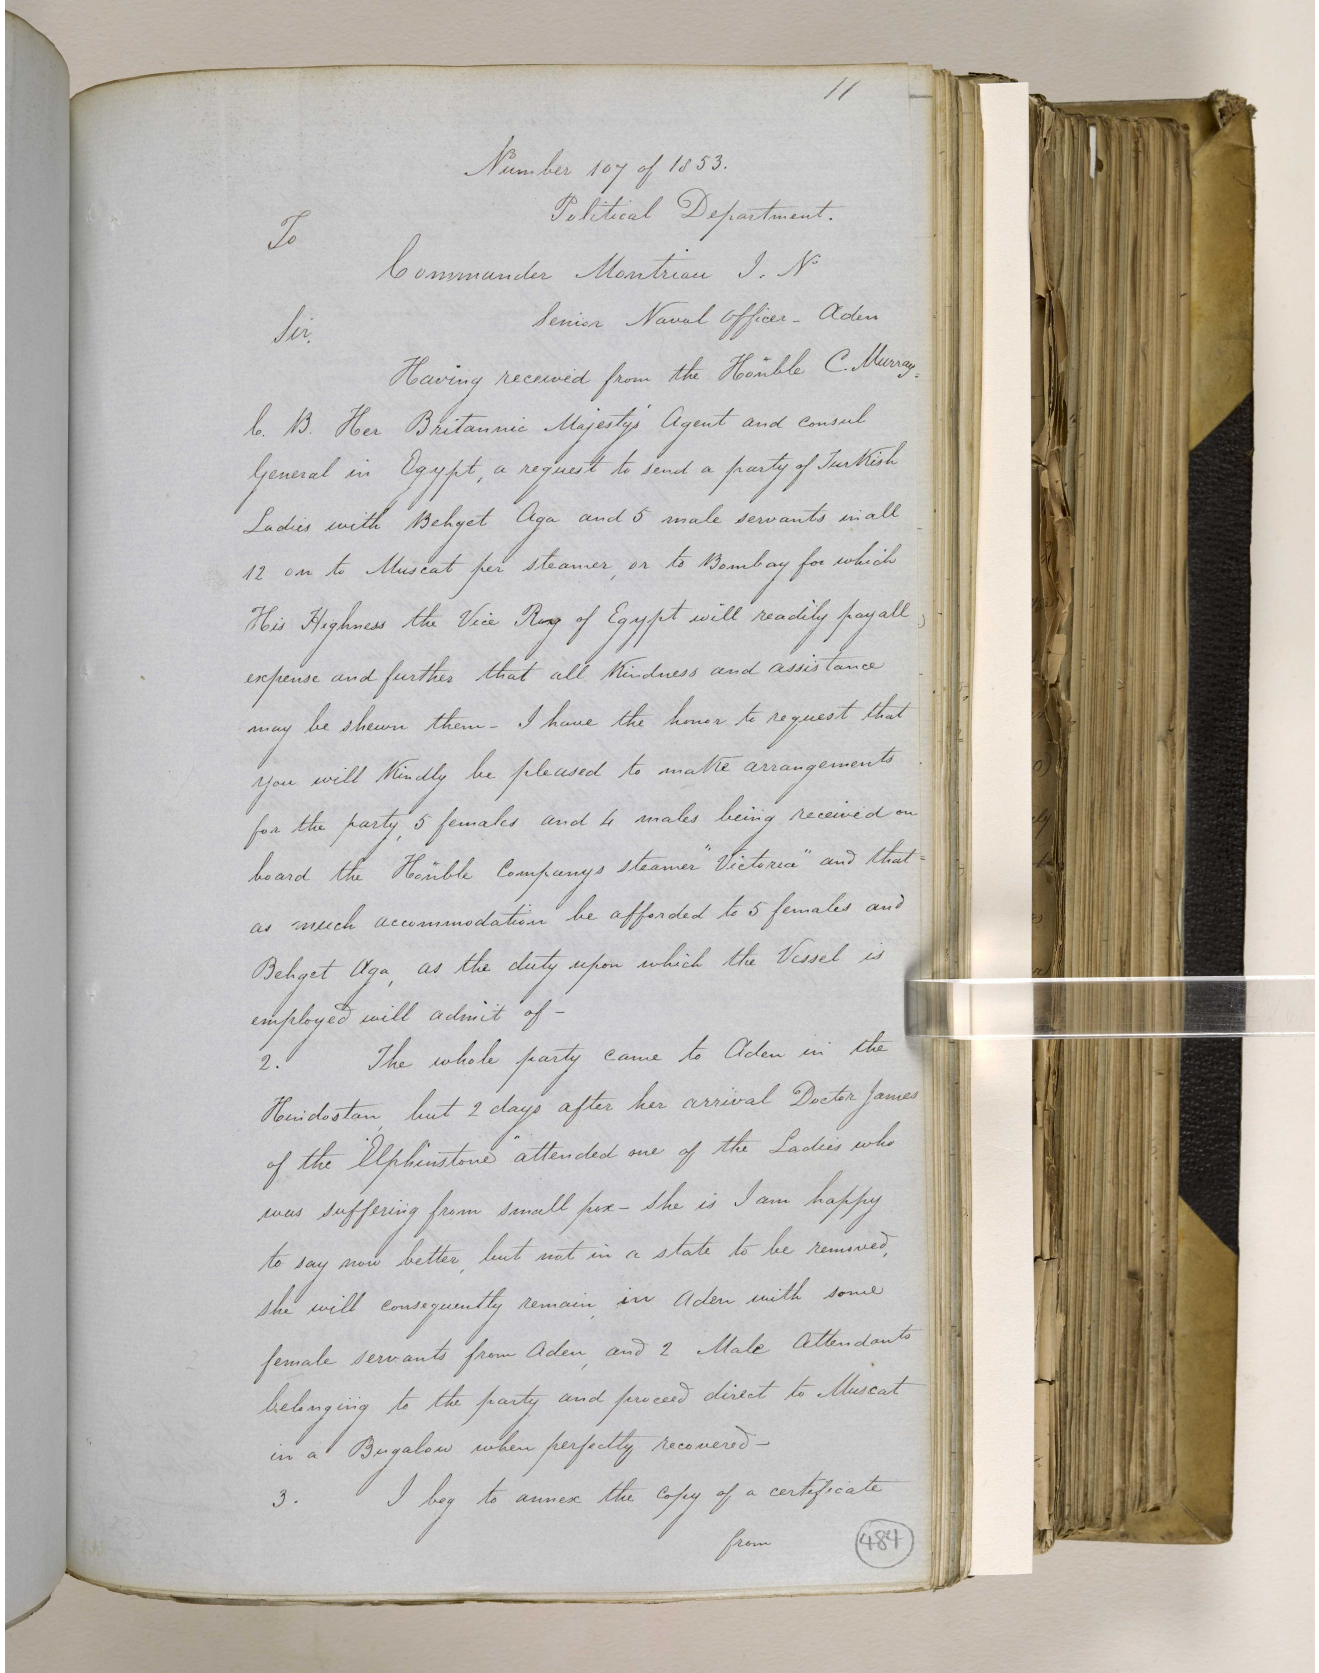 11
Number 107 of 1853.
Political Department.
To
Commander Montriou I. N.
Senior Naval Officer - Aden
Sir,
Having received from the Honble C. Murray.
C. B. Her Britannic Majesty's Agent and consul
General in Egypt, a request to send a party of Turkish
Ladies with Behget Aga and 5 male servants in all
12 on to Muscat per steamer, or to Bombay for which
His Highness the Vice Roy of Egypt will readily pay all
expense and further that all Kindness and assistance
may be shewn them - I have the honor to request that
you will Kindly be pleased to make arrangements
for the party, 5 females and 4 males being received on
board the Honble Companys steamer "Victoria" and that
as much accommodation be afforded to 5 females and
Behget Aga, as the duty upon which the Vessel is
employed will admit of -
2. The whole party came to Aden in the
Hindostan, but 2 days after her arrival Doctor James
of the "Elphinstone" attended one of the Ladies who
was suffering from small pox - she is I am happy
to say now better, but not in a state to be removed,
she will consequently remain in Aden with some
female servants from Aden, and 2 Male Attendants
belonging to the party and proceed direct to Muscat
in a Bugalow when perfectly recovered -
3. I beg to annex the Copy of a certificate
from
484